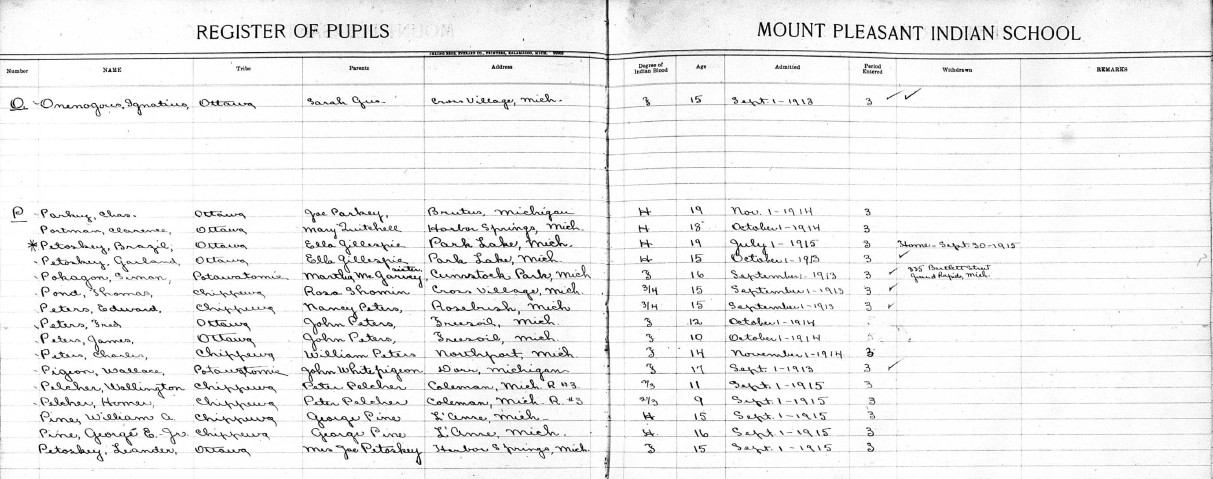 REGISTER OF PUPILS MOUNT PLEASANT INDIAN SCHOOL
Number NAME Tribe Parents Address Degree of Indian Blood Age Admitted Period Entered Withdrawn REMARKS
O Onenogous, Ignatius, Ottawa Sarah Gus. Cross Village, Mich. 3 15 Sept. 1-1913 3 ✓ ✓
P Parkey, Chas. Ottawa Joe Parkey, Brutus, Michigan H 19 Nov. 1-1914 3
Portman, Clarence, Ottawa Mary Quitchell Harbor Springs, Mich. H 18 October 1-1914 3
*Petoskey, Brazil, Ottawa Ella Gillespie Park Lake, Mich. H 19 July 1-1915 3 Home-Sept-30-1915
Petoskey, Garland, Ottawa Ella Gillespie Park Lake, Mich. H 15 October 1-1913 3 ✓
Pokagon, Simon, Potawatomie Martha McGarvey sister Cumstock Park, Mich 3 16 September 1-1913 3 ✓ 325 Bartlett Street Grand Rapids, Mich.
Pond, Thomas, Chippewa Rosa Shomin Cross Village, Mich. 3/4 15 September 1-1913 3 ✓
Peters, Edward, Chippewa Nancy Peters, Rosebush, Mich 3/4 15 September 1-1913 3 ✓
Peters, Fred, Ottawa John Peters, Freesoil, Mich. 3 12 October 1-1914
Peters, James, Ottawa John Peters, Freesoil, Mich. 3 10 October 1-1914
Peters, Charles, Chippewa William Peters Northport, Mich. 3 14 November 1-1914 3
Pigeon, Wallace, Potawatomie John Whitepigeon Dorr, Michigan 3 17 Sept. 1-1913 3 ✓
Pelcher, Wellington Chippewa Peter Pelcher Coleman, Mich. R #3. 2/3 11 Sept. 1-1915 3
Pelcher, Homer, Chippewa Peter Pelcher Coleman, Mich. R. #3 2/3 9 Sept. 1-1915 3
Pine, William A. Chippewa George Pine L'Anse, Mich. H 15 Sept. 1-1915 3
Pine, George E. Jr. Chippewa George Pine L'Anse, Mich. H 16 Sept. 1-1915 3
Petoskey, Leander, Ottawa Mrs Joe Petoskey Harbor Springs, Mich. 3 15 Sept. 1-1915 3